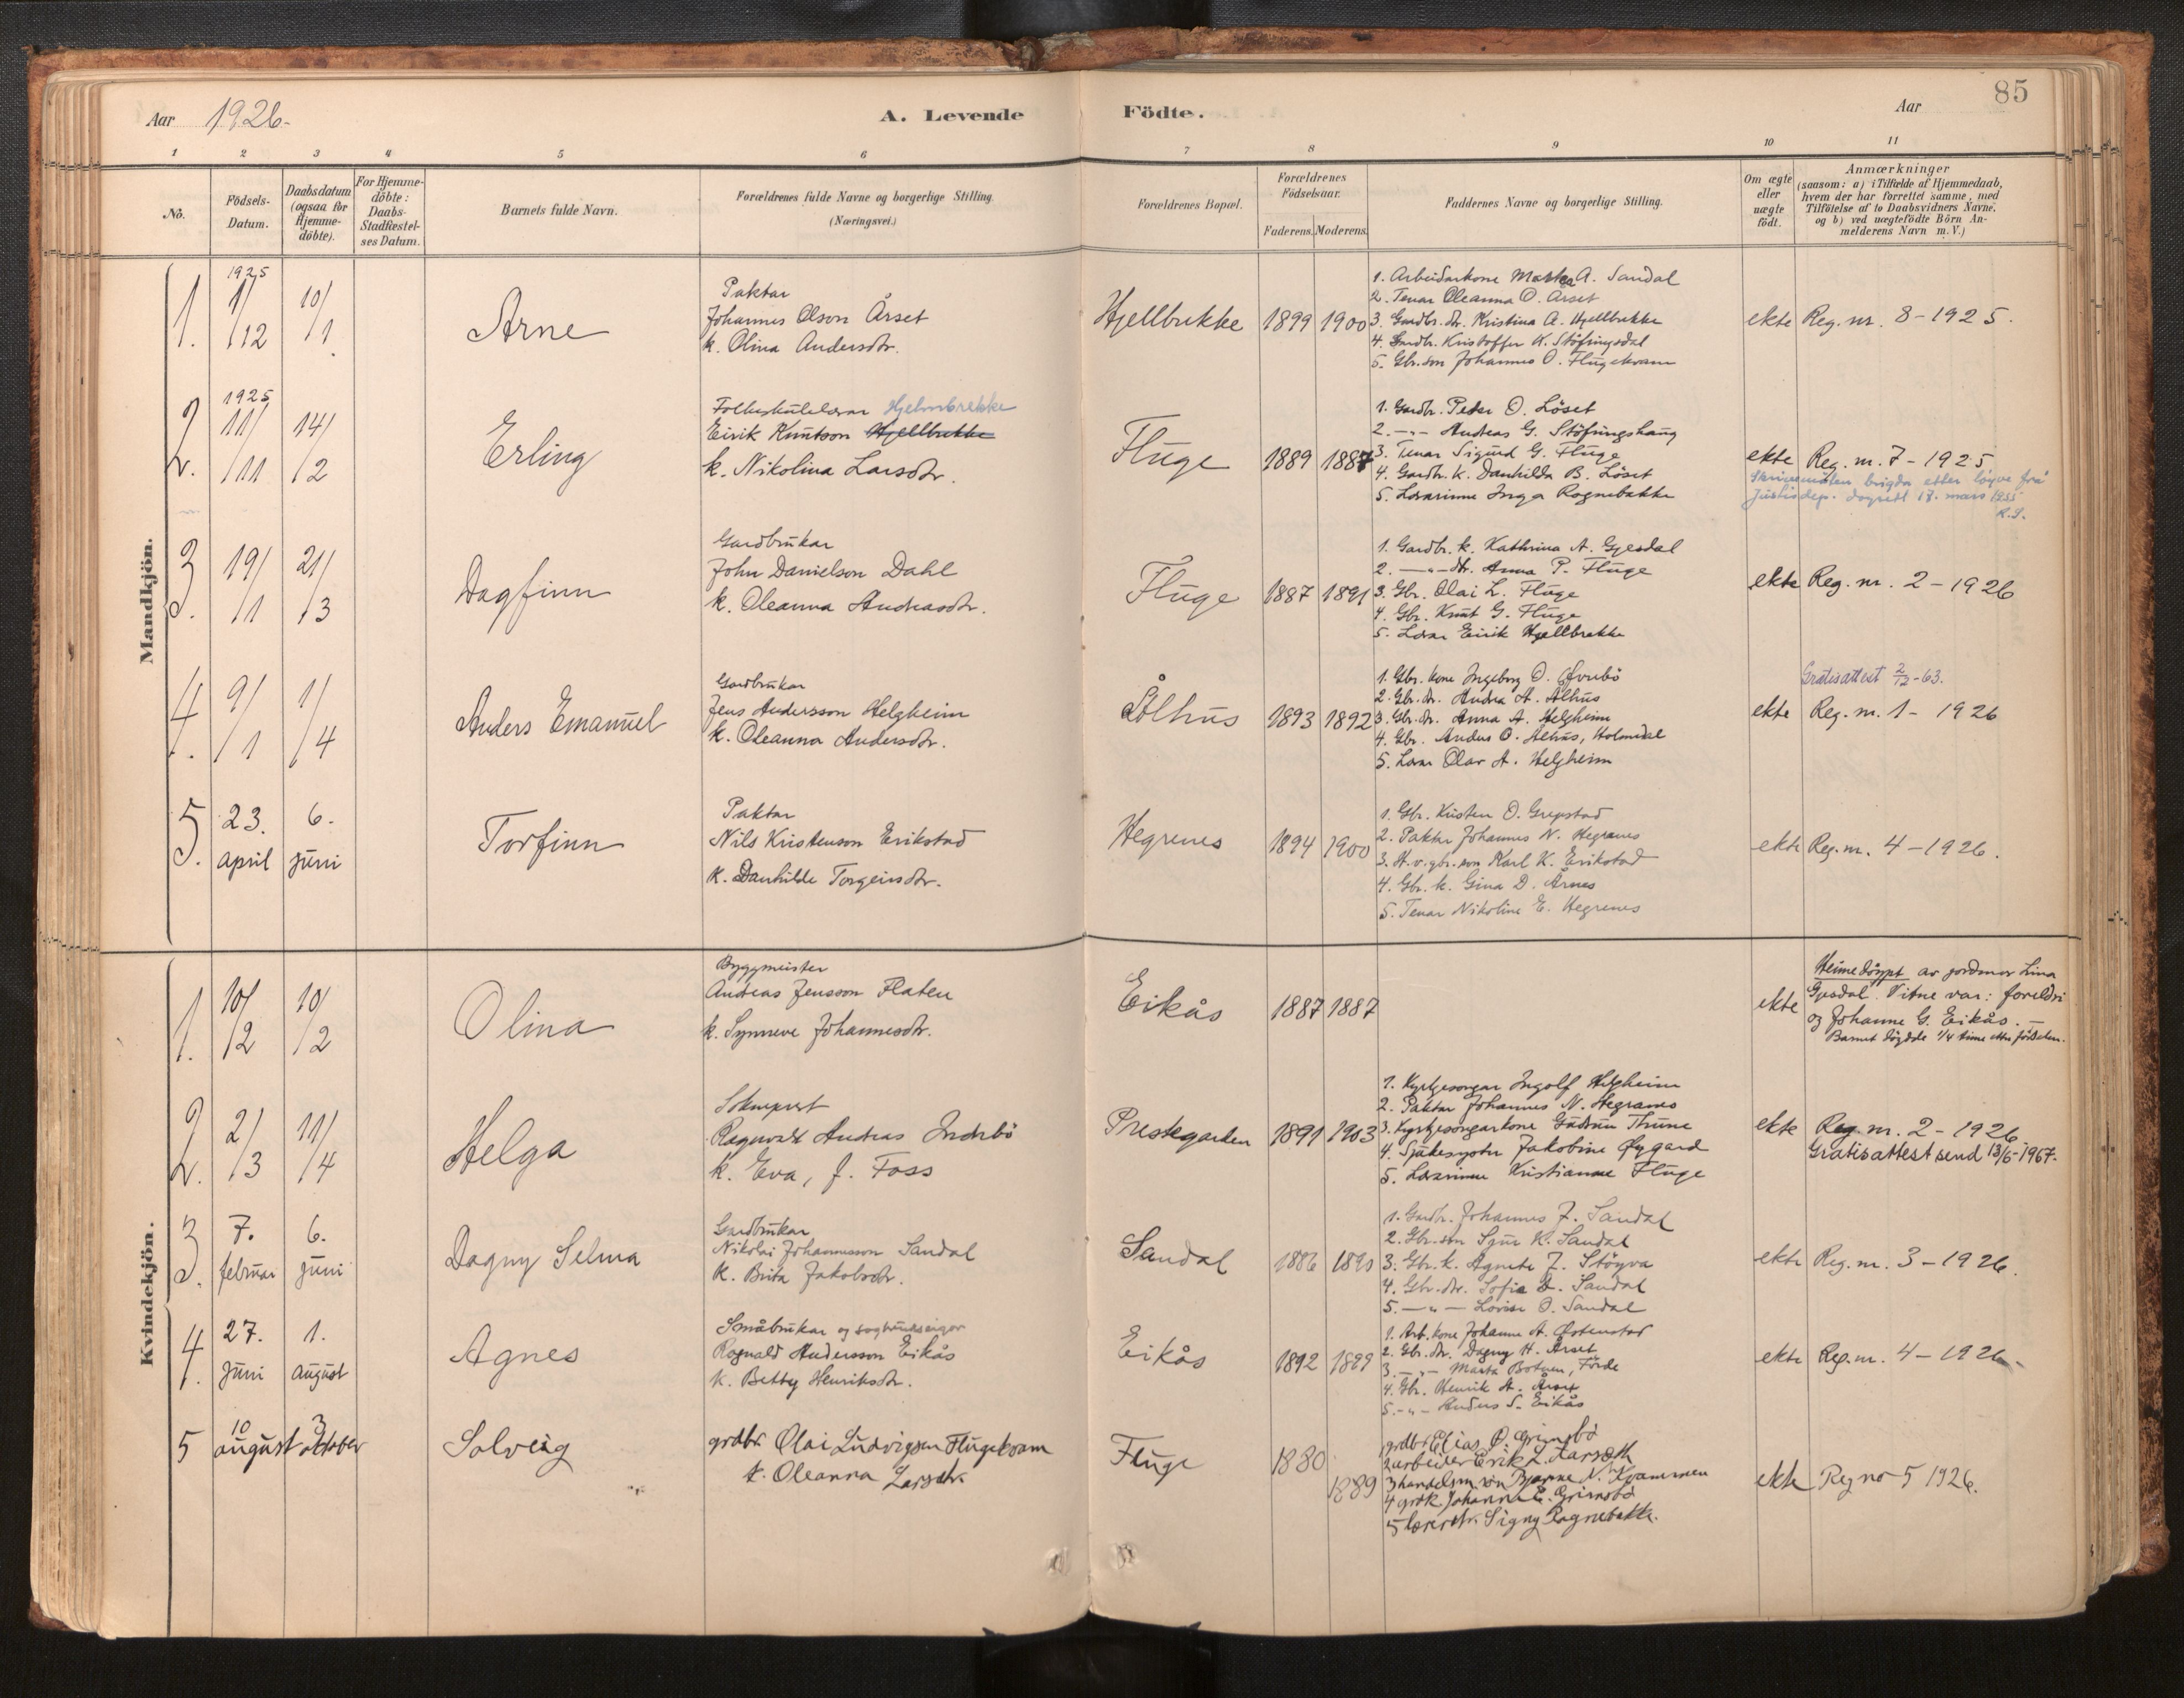 85
Aar 1926.
A. Levende Födte.
Aar
1 2 3 4 5 6 7 8 9 10 11
No.
Födsels-Datum.
Daabsdatum (ogsaa for Hjemme-döbte).
For Hjemme-döbte: Daabs-Stadfæstel-ses Datum.
Barnets fulde Navn.
Forældrenes fulde Navne og borgerlige Stilling.
(Næringsvei.)
Forældrenes Bopæl.
Forældrenes Födselsaar.
Faderens. Moderens.
Faddernes Navne og borgerlige Stilling.
Om ægte eller uægte født.
Anmærkninger
(saasom: a) i Tilfælde af Hjemmedaab,
hvem der har forrettet samme, med
Tilföielse af to Daabsvidners Navne,
og b) ved uægtefödte Börn An-
melderens Navn m.V.)
Mandkjön.
1. 1925 1/12 10/1
Arne
Paktar
Johannes Olson Årset
k. Olina Andersdtr.
Hjellbrekke 1899 1900
1. Arbeidarkone Marta A. Sandal
2. Tenar Oleanna O. Årset
3. Gardbr. dr. Kristina A. Hjellbrekke
4. Gardbr. Kristoffer K. Støfringsdal
5. Gbr. son Johannes O. Flugekvam
ekte Reg. nr. 8-1925.
2. 1925 11/11 14/2
Erling
Folkeskulelærar Hjelmbrekke
Eirik Knutson Hjellbrekke
k. Nikolina Larsdtr.
Fluge 1889 1887
1. Gardbr. Peder O. Löset
2. -"- Andreas G. Støfringshaug
3. Tenar Sigurd G. Fluge
4. Gardbr. k. Danhilda B. Löset
5. Lærarinne Inga Rognebakke
ekte Reg. nr. 7-1925
brigda etter løyve frå
Justisdep. dagsett 17. mars 1955
3. 19/1 21/3
Dagfinn
Gardbrukar
John Danielson Dahl
k. Oleanna Andreasdtr.
Fluge 1887 1891
1. Gardbr. k. Kathrina A. Gjesdal
2. -"- dtr. Anna P. Fluge
3. Gbr. Olai L. Fluge
4. Gbr. Knut G. Fluge
5. Lærar Eirik Hjellbrekke
ekte Reg. nr. 2-1926
4. 9/1 1/4
Anders Emanuel
Gardbrukar
Jens Andersson Helgheim
k. Oleanna Andersdtr.
Ålhus 1893 1892
1. Gbr. kone Ingeborg O. Øvrebö
2. Gbr. dr. Andrea A. Ålhus
3. Gbr. dr. Anna A. Helgheim
4. Gbr. Anders O. Ålhus, Holsendal
5. Lærar Olav A. Helgheim
Gratisattest 2/12-63.
ekte Reg. nr. 1-1926
5. 23. april 6. juni
Torfinn
Paktar
Nils Kristenson Erikstad
k. Danhilde Torgeirsdtr.
Hegrenes 1894 1900
1. Gbr. Kristen O. Grepstad
2. Paktar Johannes N. Hegrenes
3. H.v. gbr. son Karl K. Erikstad
4. Gbr. k. Gina D. Årnes
5. Tenar Nikoline E. Hegrenes
ekte Reg. nr. 4-1926.
Kvindekjön.
1. 10/2 10/2
Olina
Byggmeister
Andreas Jensson Flaten
k. Synneve Johannesdtr.
Eikås 1887 1887
ekte
Heimedöypt av jordmor Lina
Gjesdal. Vitne var: foreldri
og Johanne G. Eikås.
Barnet döydde 1/4 time etter födselen.
2. 2/3 11/4
Helga
Sokneprest
Ragnvald Andreas Indrebö
k. Eva, f. Foss
Prestegarden 1891 1903
1. Kyrkjesongar Ingolf Helgheim
2. Paktar Johannes N. Hegrenes
3. Kyrkjesongarkone Gudrun Thune
4. Sjukesyster Jakobine Øygard
5. Lærarinne Kristianne Fluge
ekte Reg. nr. 2-1926
Gratisattest send 13/6-1967.
3. 7. februar 6. juni
Dagny Selma
Gardbrukar
Nikolai Johannesson Sandal
k. Brita Jakobsdtr.
Sandal 1886 1890
1. Gardbr. Johannes J. Sandal
2. Gbr. son Sjur K. Sandal
3. Gbr. k. Agnete J. Stöyva
4. Gbr. dr. Sofie D. Sandal
5. -"- Lovise O. Sandal
ekte Reg. nr. 3-1926.
4. 27. juni 1. august
Agnes
Småbrukar og sagbrukseigar
Ragnald Andersson Eikås
k. Betty Henriksdtr.
Eikås 1892 1899
1. Arb. kone Johanne A. Østenstad
2. Gbr. dr. Dagny H. Årset
3. -"- Marta Botnen, Förde
4. Gbr. Henrik A. Årset
5. -"- Anders S. Eikås
ekte Reg. nr. 4-1926
5 10 august 3 oktober
Solveig
grdbr. Olai Ludvigsen Flugekvam
k. Oleanna Larsdtr.
Fluge 1880 1889
grdbr Elias O. Grimsbö
2 arbeider Erik L.
3 handelsm. sön Bjarne N. Kvammen
4 grdk. Johanne E. Grimsbö
5 lærerdtr. Signy Rognebakke.
ekte Reg no 5 1926.